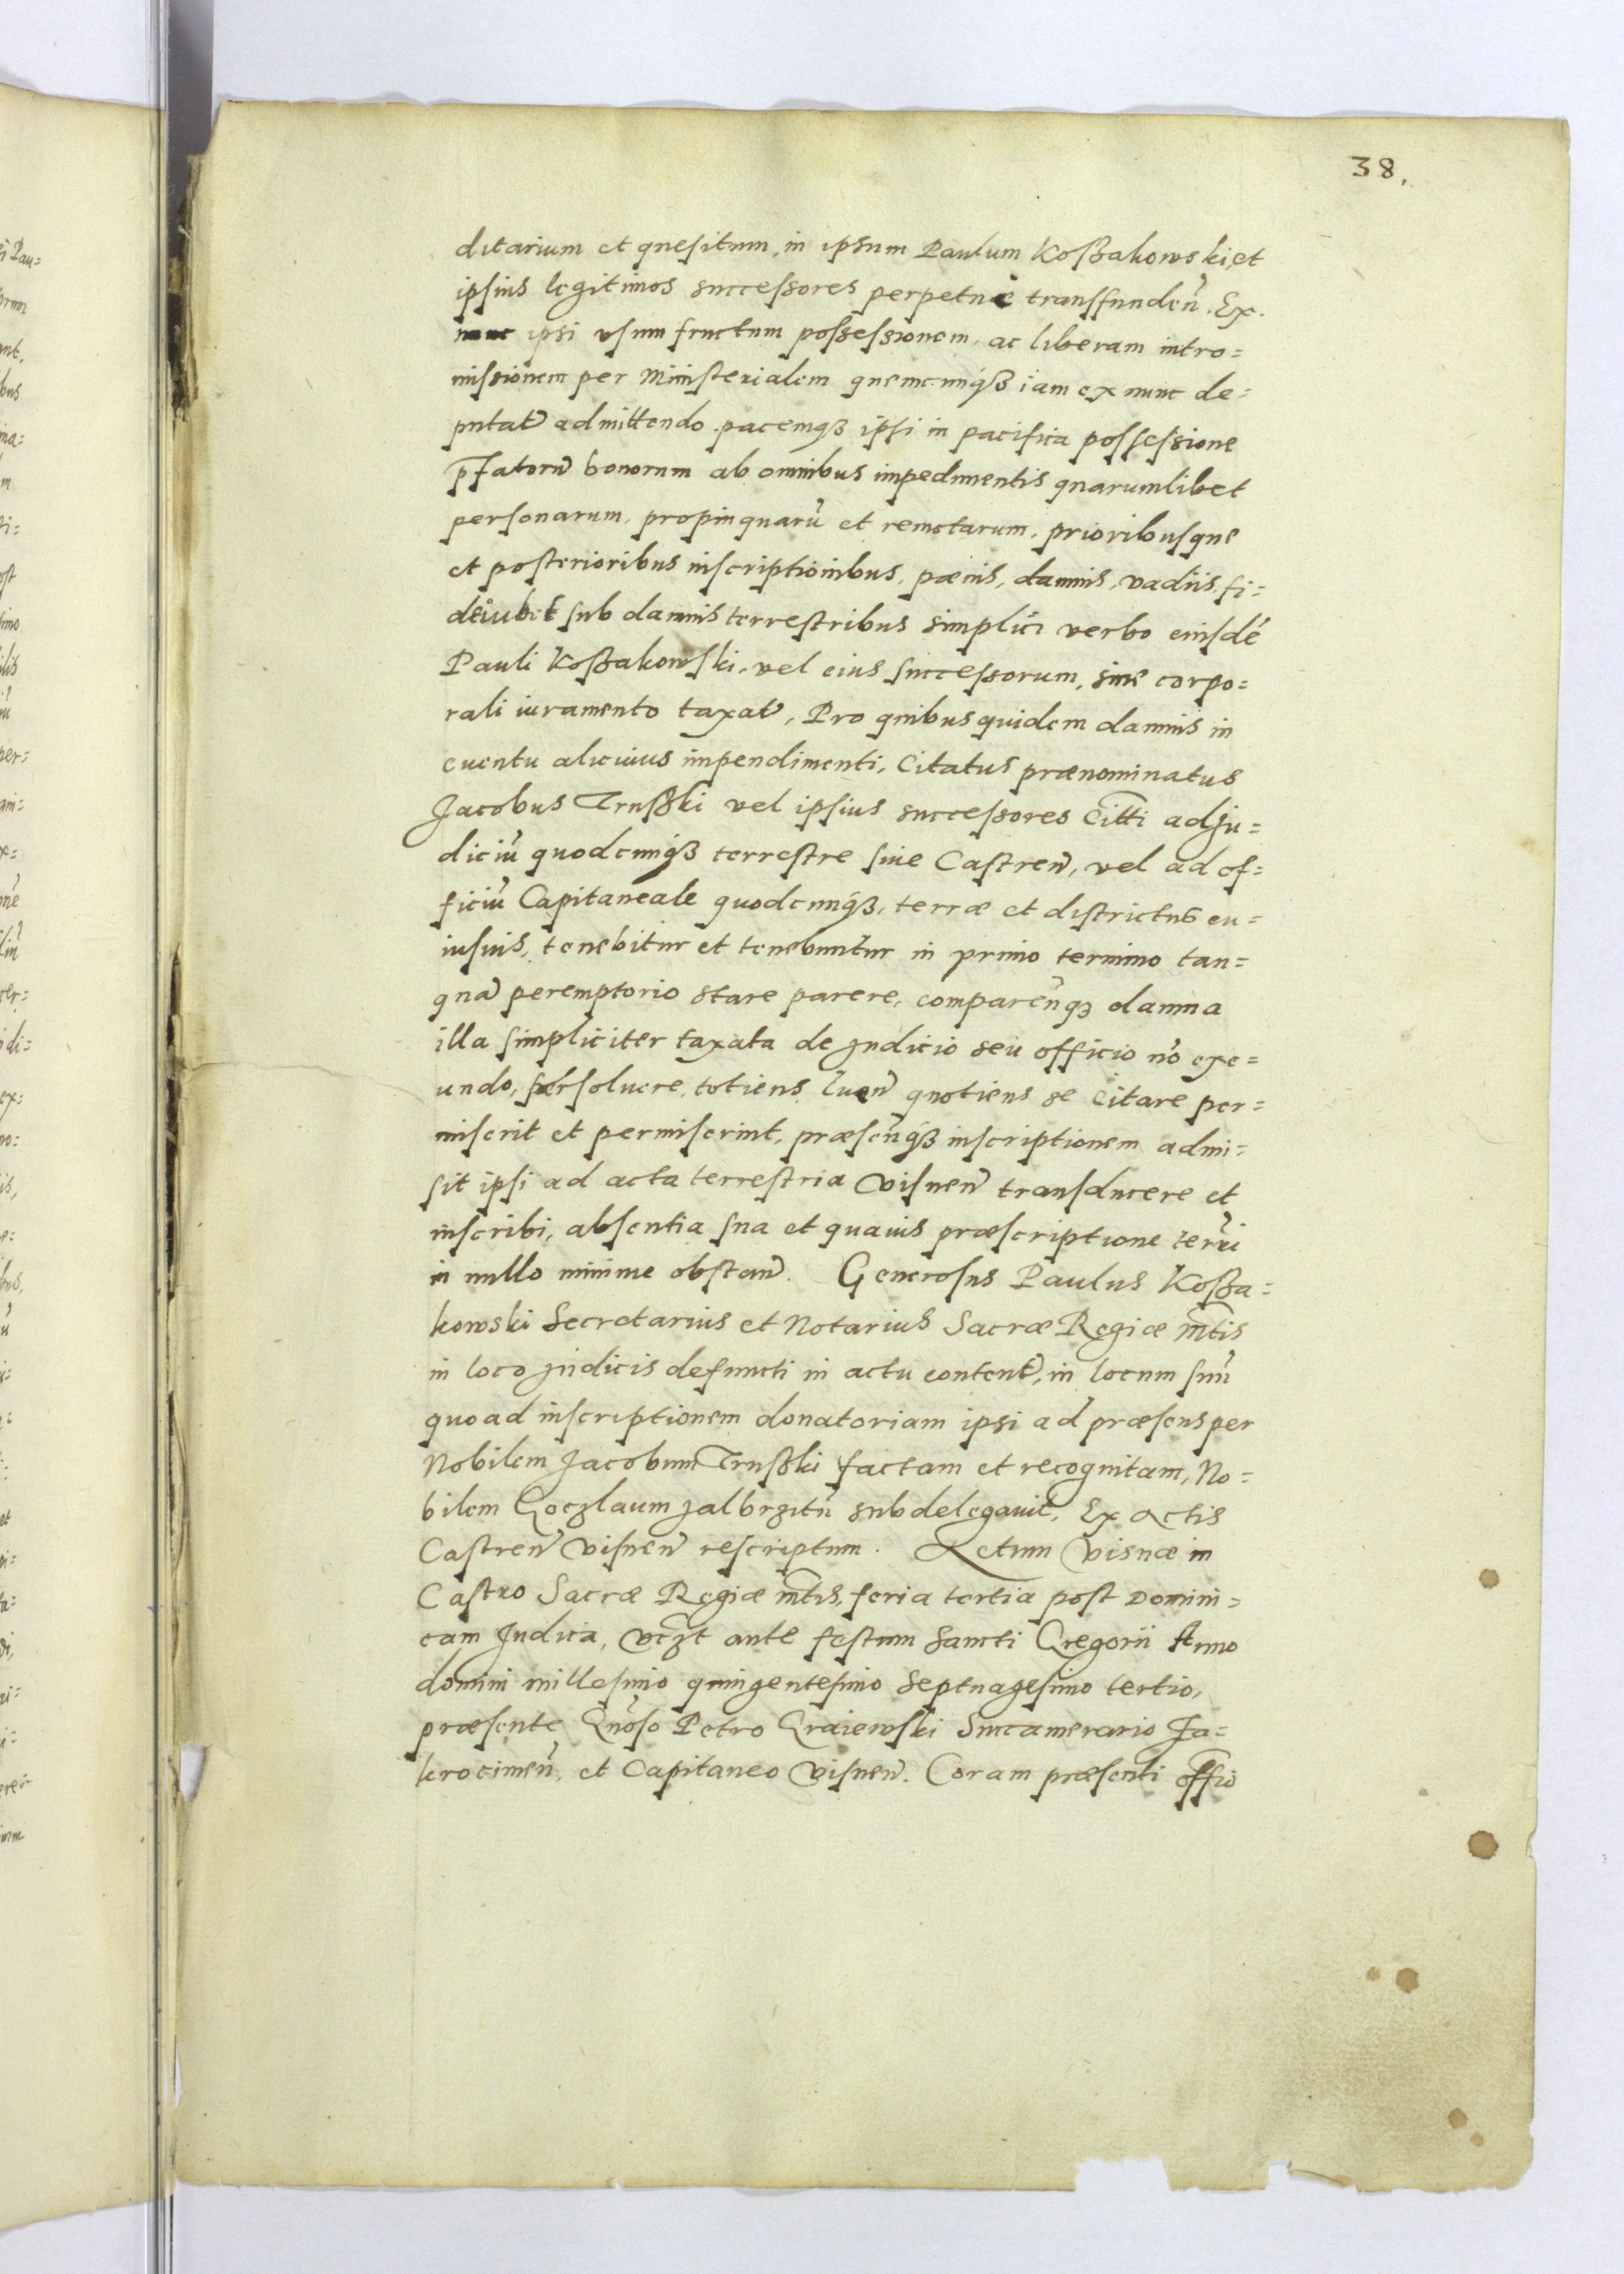 38.
ditarium et quesitum, in ipsum Paulum Koßakowski, et
ipsius legitimos successores perpetuè transfunden̄. Ex
nunc ipsi usumfructum possessionem, ac liberam intro=
missionem per Ministerialem quemcunq̨ iam ex nunc de=
putat̄ admittendo. pacemq̨ ipsi in pacifica possessione
p̄fatorū bonorum ab omnibus impedimentis quarumlibet
personarum, propinquarū et remotarum, prioribusque
et posterioribus inscriptionibus, pœnis, damnis, vadiis, fi=
deiubet sub damnis terrestribus simplici verbo eiusdē
Pauli Koßakowski, vel eius successorum, sine corpo=
rali iuramento taxat̄, Pro quibus quidem damnis in
euentu alicuius impendimenti, Citatus prænominatus
Jacobus Trußki vel ipsius successores Citti ad Ju=
diciū quodcunq̨ terrestre siue Castren̄, vel ad of=
ficiū Capitaneale quodcunq̨, terræ et districtus cu=
iusuis, tenebitur et tenebuntur in primo termino tan=
quā peremptorio stare parere, comparen̄q̨ damna
illa simpliciter taxata de Judicio seu officio nō exe=
undo, persoluere, totiens luen̄ quotiens se Citare per=
miserit et permiserint, præsen̄q̨ inscriptionem admi=
sit ipsi ad acta terrestria Visnen̄ transducere et
inscribi, absentia sua et quauis præscriptione terr̄i
in nullo minime obstan̄. Generosus Paulus Koßa=
kowski Secretarius et Notarius Sacræ Regiæ Mtis
in loco Judicis defuncti in actu content̄, in locum suū
quoad inscriptionem donatoriam ipsi ad præsens per
Nobilem Jacobum Trußki factam et recognitam, No=
bilem Goczlaum Zalbrzitū subdelegauit. Ex Actis
Castren̄ Visnen̄ rescriptum. Actum Visnæ in
Castro Sacræ Regiæ Mtis, feria tertia post Domini=
cam Judica, vczt ante festum Sancti Gregorii Anno
domini millesimo quingentesimo Septuagesimo tertio,
præsente Gnōso Petro Graiewski Succamerario Za=
krocimen̄, et Capitaneo Visnen̄. Coram præsenti offio